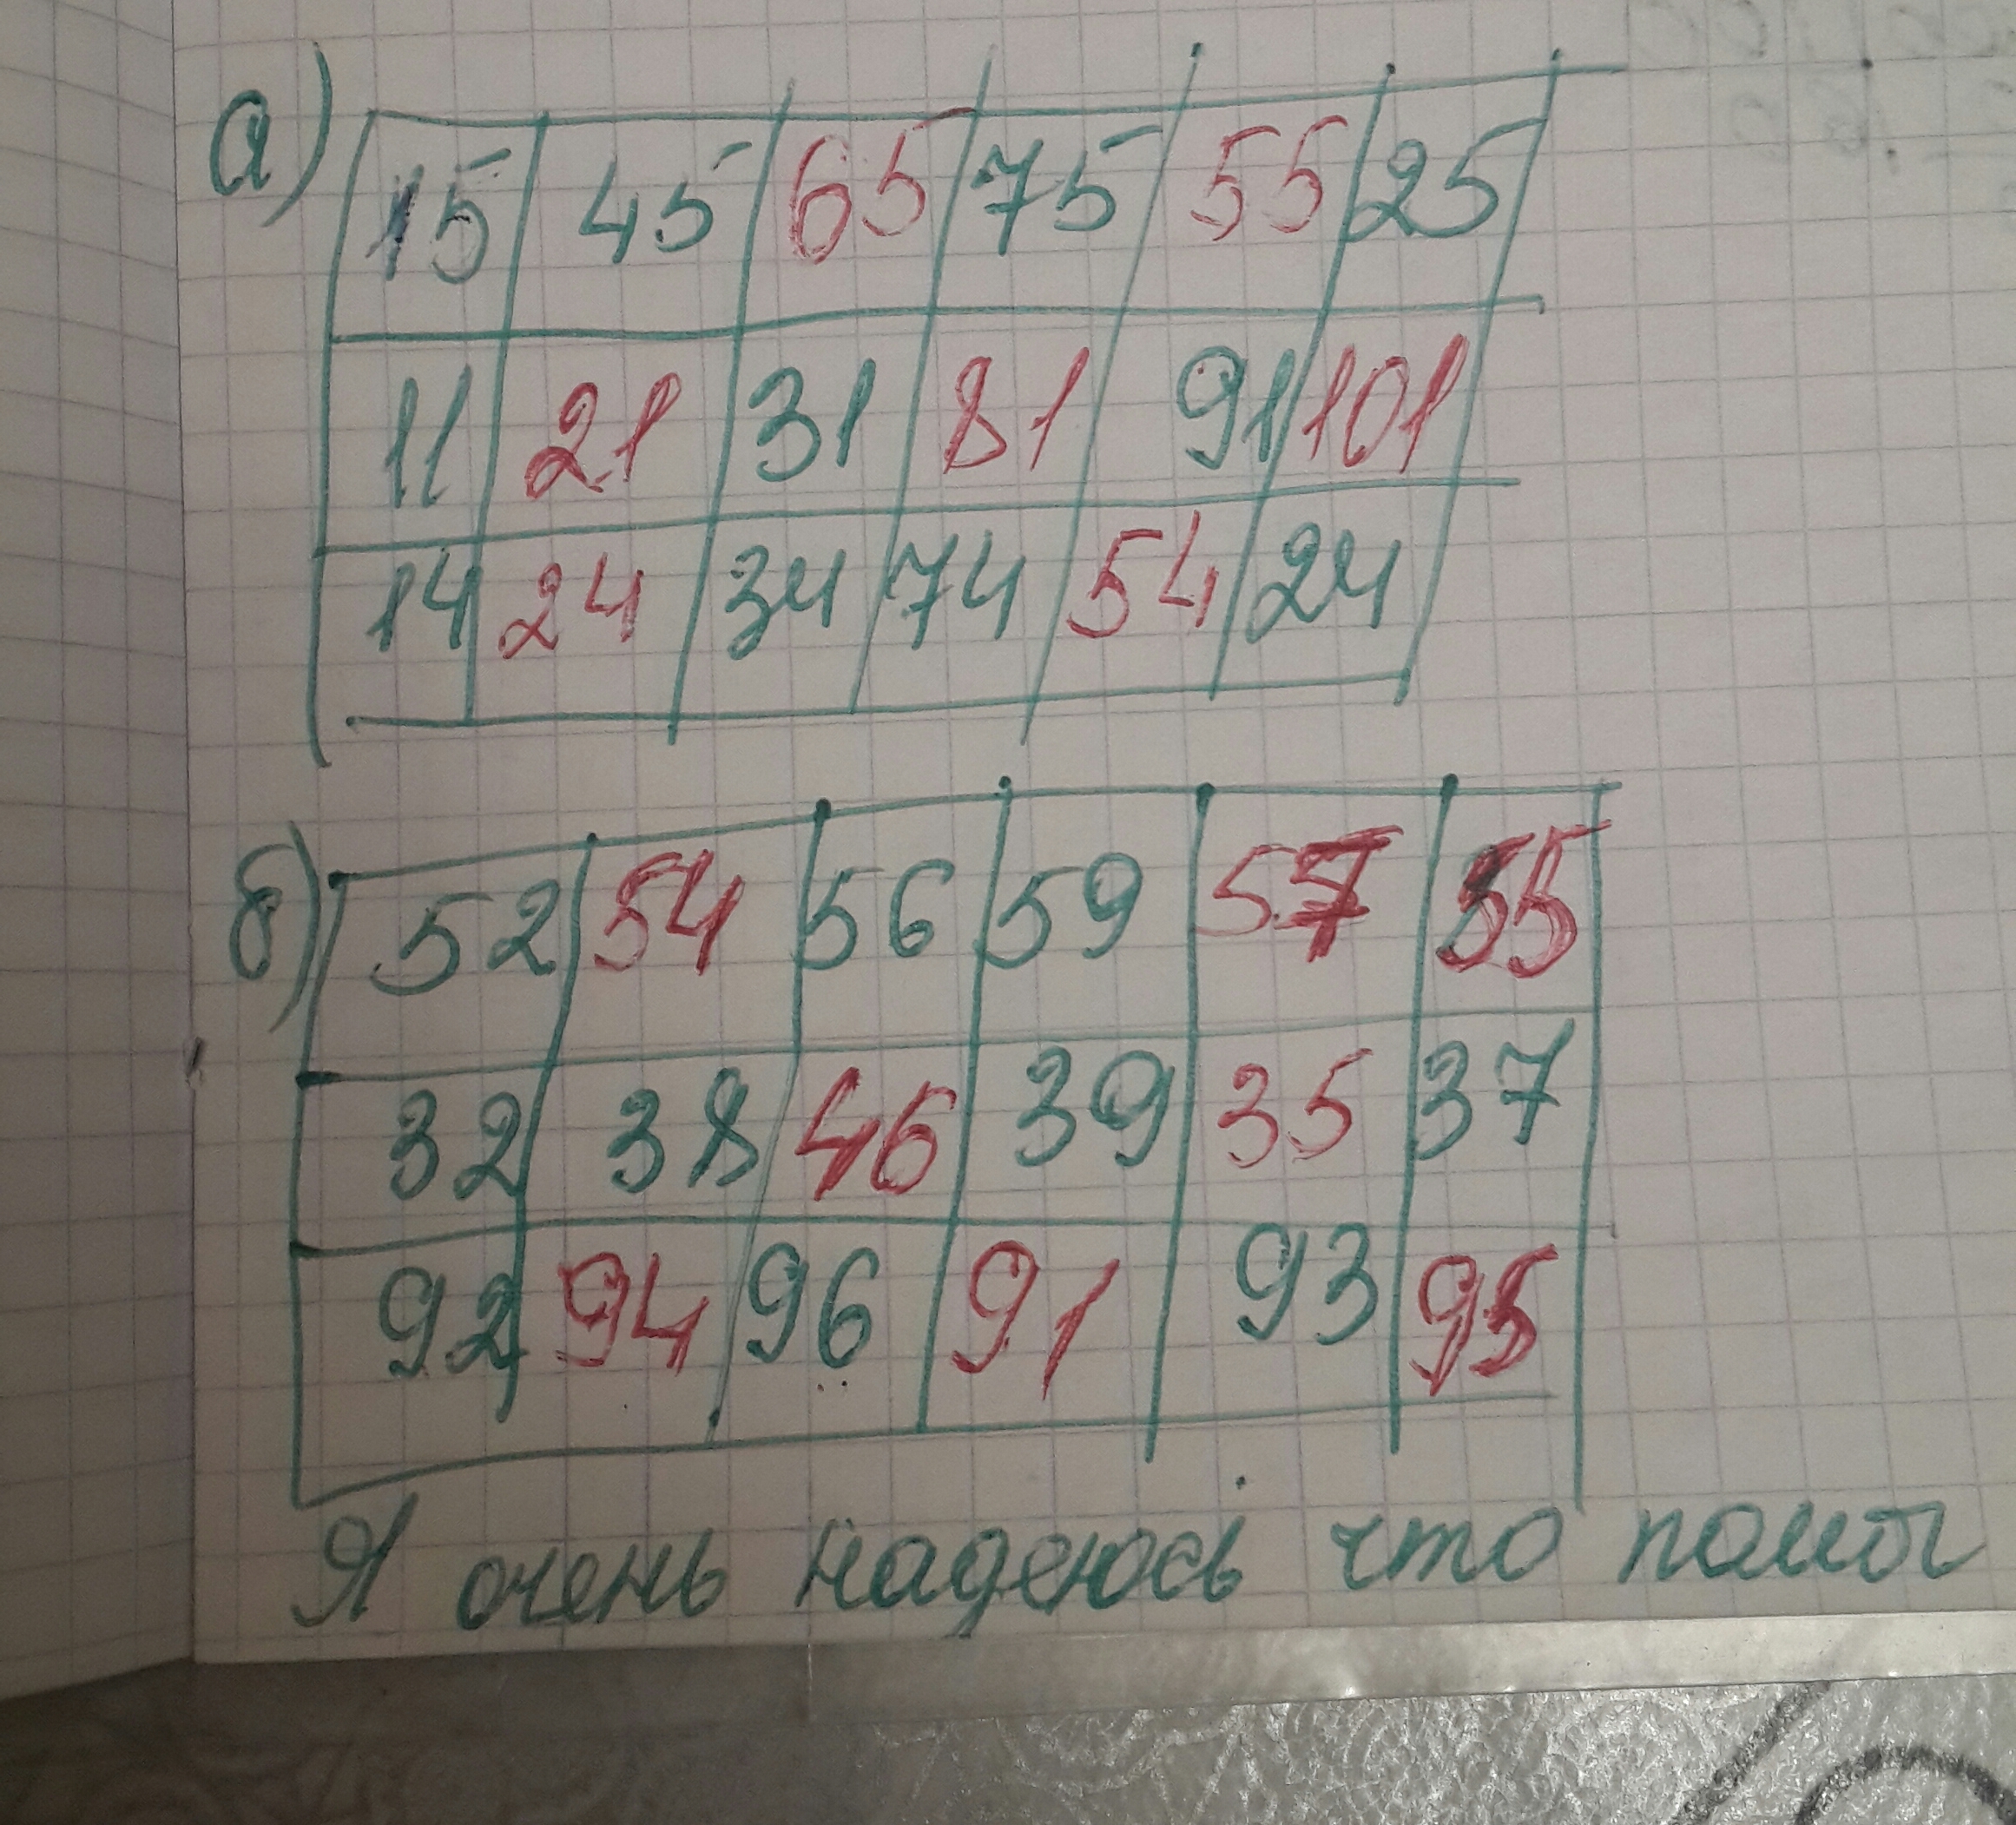 а)
15 45 65 75 55 25
11 21 31 81 91 101
14 24 34 74 54 24
б)
52 54 56 59 57 55
32 38 46 39 35 37
92 94 96 91 93 95
Я очень надеюсь что помог